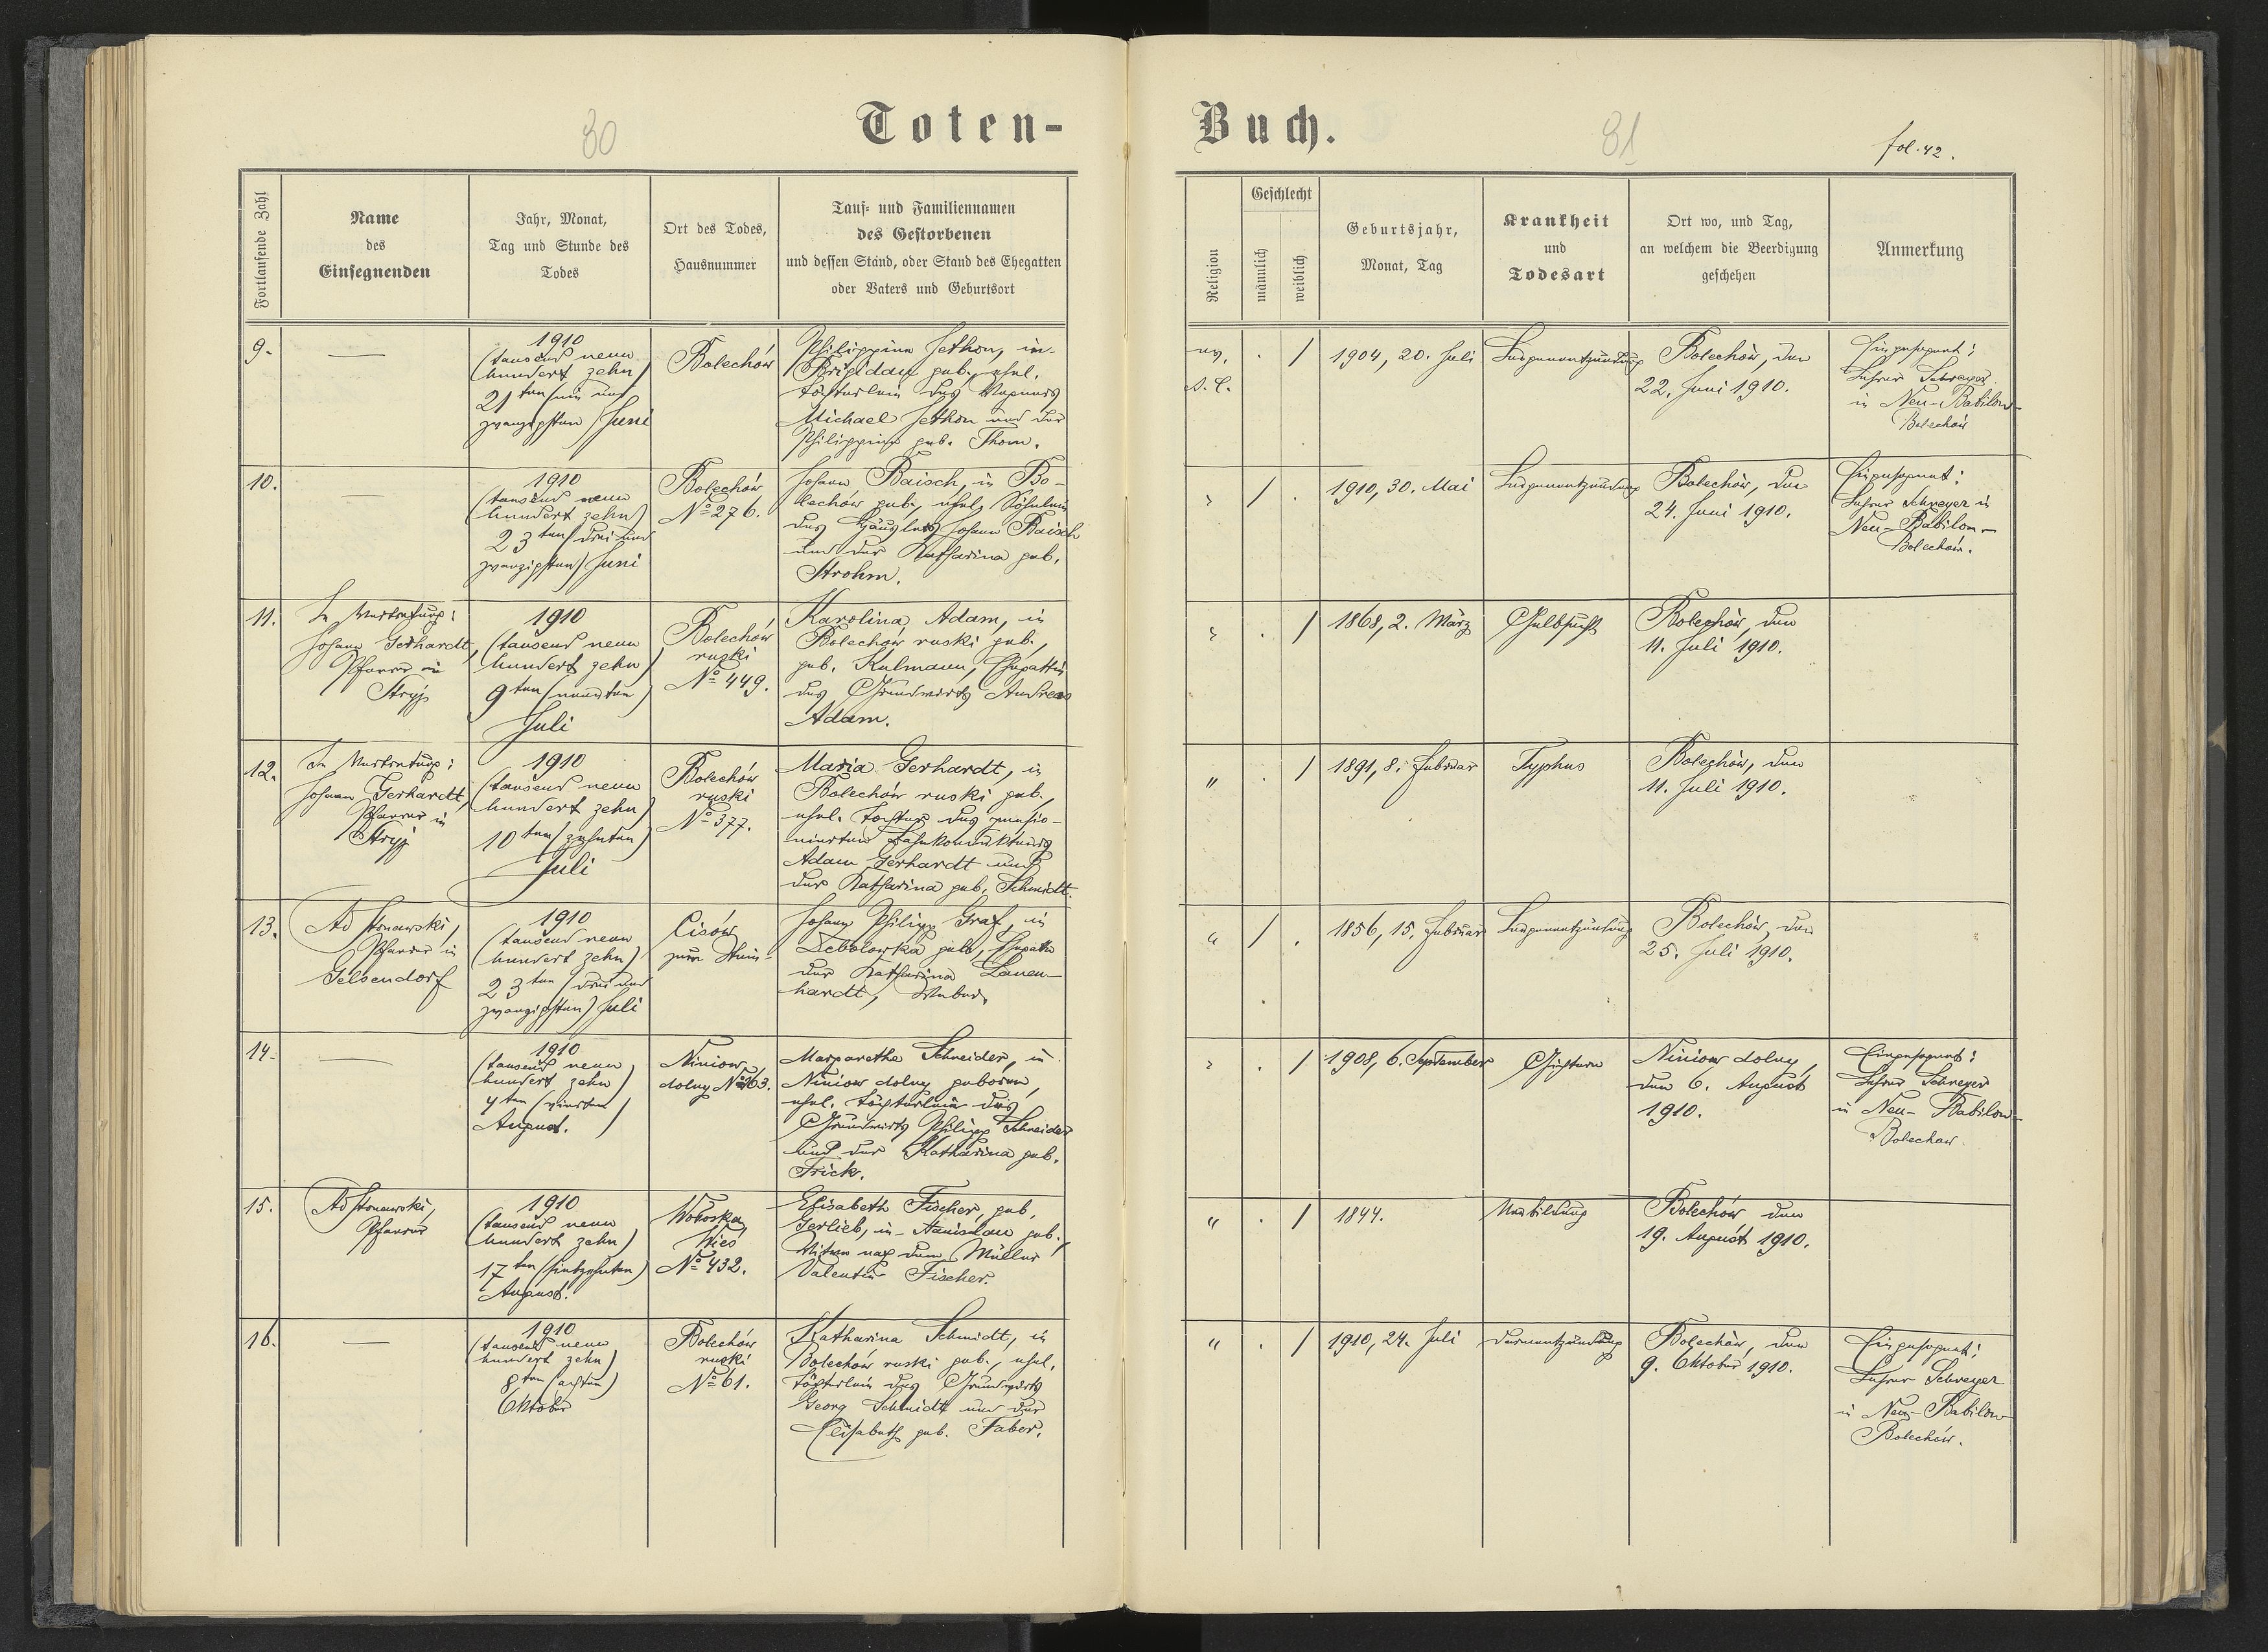 80
Toten-
Buch.
81
fol. 42.
Fortlaufende Zahl
Name
des
Einsegnenden
Jahr, Monat,
Tag und Stunde des
Todes
Ort des Todes,
Hausnummer
Tauf- und Familiennamen
des Gestorbenen
und dessen Stand, oder Stand des Ehegatten
oder Vaters und Geburtsort
Religion
Geschlecht
männlich
weiblich
Geburtsjahr,
Monat, Tag
Krankheit
und
Todesart
Ort wo, und Tag,
an welchem die Beerdigung
geschehen
Anmerkung
9.
—
1910
(tausend neun
hundert zehn)
21ten (ein und
zwanzigsten) Juni
Bolechów
Philippine Jethon, in
Brigidau geb., ehel.
Töchterlein des Wagners
Michael Jethon und der
Philippine geb. Thom.
ev.
A. C.
.
/
1904, 20. Juli
Lungenentzündung
Bolechów, den
22. Juni 1910.
Eingesegnet:
Lehrer Schreyer
in Neu-Babilon-
Bolechów
10.
—
1910
(tausend neun
hundert zehn)
23ten (drei und
zwanzigsten) Juni
Bolechów
No 276.
Johann Baisch, in Bo-
lechów geb., ehel. Söhnlein
des Häuslers Johann Baisch
und der Katharina geb.
Strohm.
"
/
.
1910, 30. Mai
Lungenentzündung
Bolechów, den
24. Juni 1910.
Eingesegnet:
Lehrer Schreyer in
Neu-Babilon-
Bolechów.
11.
In Vertretung:
Johann Gerhardt,
Pfarrer in
Stryj
1910
(tausend neun
hundert zehn)
9ten (neunten)
Juli
Bolechów
ruski
No 449.
Karolina Adam, in
Bolechów ruski geb.,
geb. Kulmann, Ehegattin
des Grundwirts Andreas
Adam.
"
.
/
1868, 2. März
Gelbsucht
Bolechów, den
11. Juli 1910.
12.
In Vertretung:
Johann Gerhardt,
Pfarrer in
Stryj
1910
(tausend neun
hundert zehn)
10ten (zehnten)
Juli
Bolechów
ruski
No 377.
Maria Gerhardt, in
Bolechów ruski geb.,
ehel. Tochter des pensio-
nierten Bahnkondukteurs
Adam Gerhardt und
der Katharina geb. Schmidt.
"
.
/
1891, 8. Februar
Typhus
Bolechów, den
11. Juli 1910.
13.
Ad Stonawski,
Pfarrer in
Gelsendorf
1910
(tausend neun
hundert zehn)
23ten (drei und
zwanzigsten) Juli
Cisów
Johann Philipp Graf, in
Debolowka geb., Ehegatte
der Katharina Lauen-
hardt, Weber.
"
/
.
1856, 15. Februar
Lungenentzündung
Bolechów, den
25. Juli 1910.
14.
—
1910
(tausend neun
hundert zehn)
4ten (vierten
August. )
Niniow
dolny No 163.
Margarethe Schneider, in
Niniow dolny geboren,
ehel. Töchterlein des
Grundwirts Philipp Schneider
und der Katharina geb.
Frick.
"
.
/
1908, 6. September
Gichtern
Niniow dolny,
den 6. August
1910.
Eingesegnet:
Lehrer Schreyer
in Neu-Babilon-
Bolechow.
15.
Ad Stonawski,
Pfarrer
1910
(tausend neun
hundert zehn)
17ten (siebzehnten)
August.
Wołoska
Wieś
No 432.
Elisabeth Fischer, geb.
Gerlieb, in Stanislau geb.,
Witwe nach dem Müller
Valentin Fischer.
"
.
/
1844.
Bolechów den
19. August 1910.
16.
—
1910
(tausend neun
hundert zehn)
8ten (achten)
Oktober
Bolechów
ruski
No 61.
Katharina Schmidt, in
Bolechów ruski geb., ehel.
Töchterlein des Grundwirts
Georg Schmidt und der
Elisabeth geb. Faber.
"
.
/
1910, 24. Juli
Darmentzündung
Bolechów, den
9. Oktober 1910.
Eingesegnet:
Lehrer Schreyer
in Neu-Babilon
Bolechów.